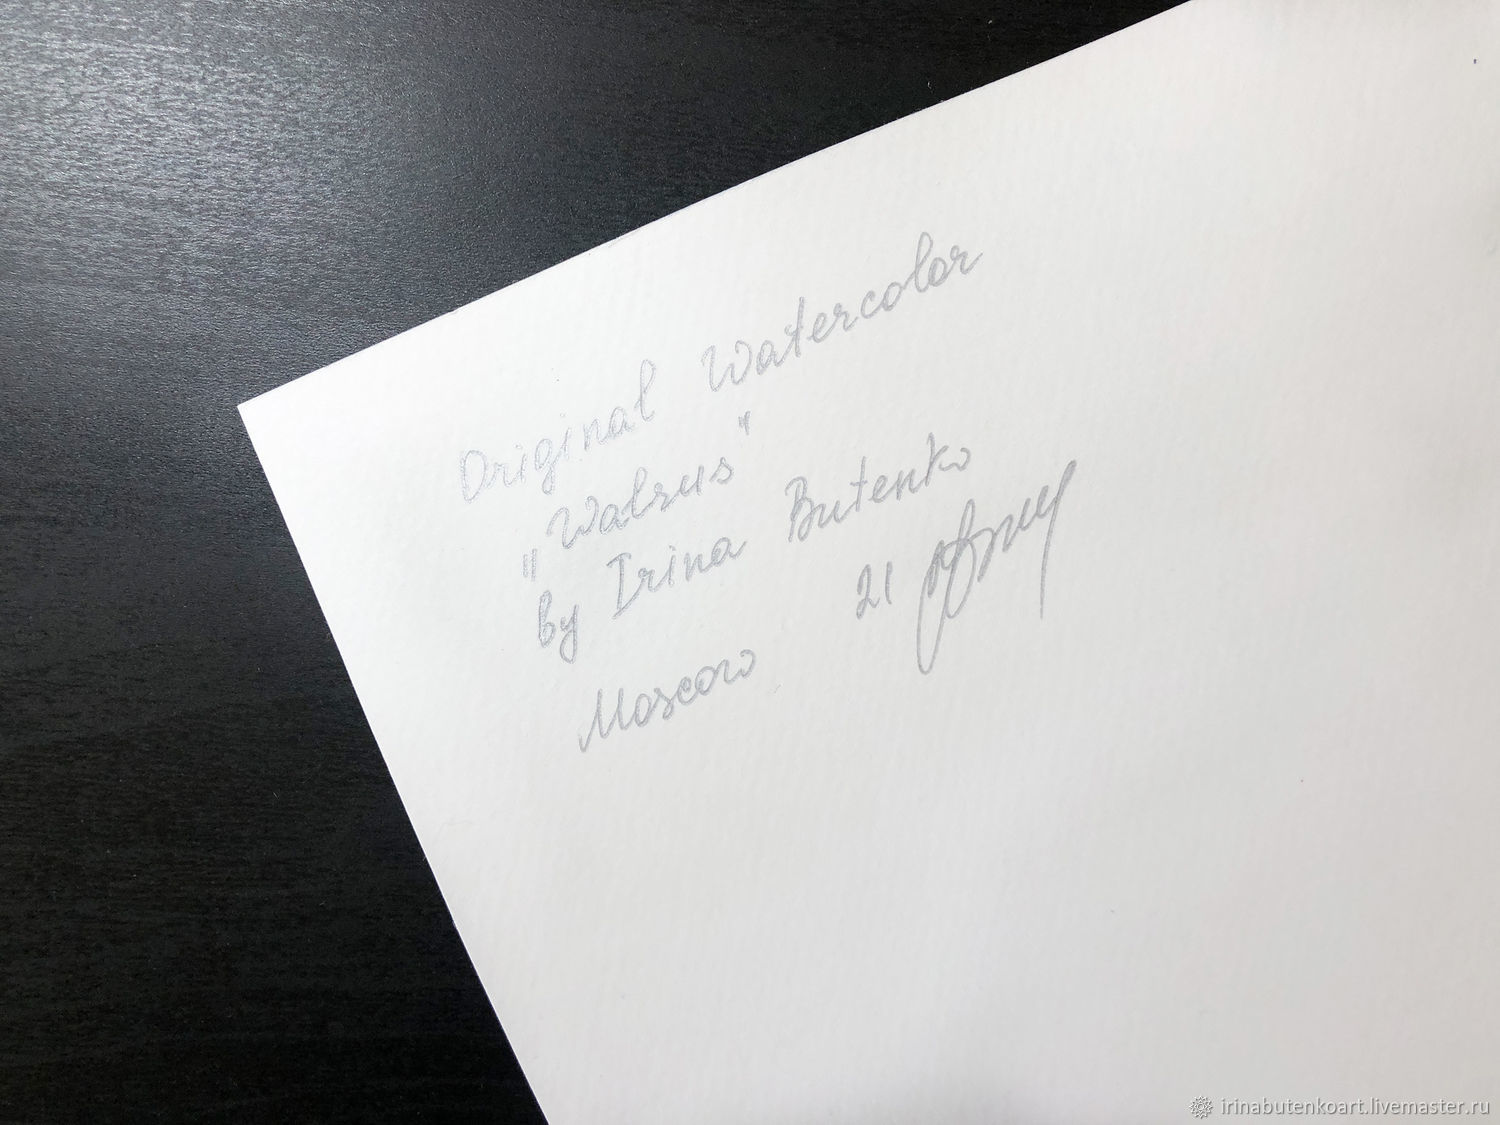 Original Watercolor
"Walrus"
by Irina Butenko
Moscow 21
irinabutenkoart.livemaster.ru